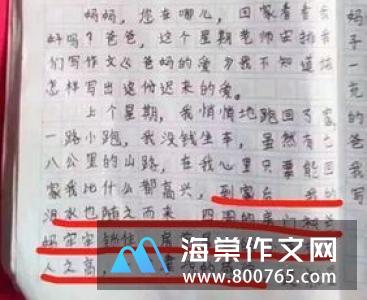 妈妈，您在哪儿，回家看看我
好吗？爸爸，这个星期老师安排我
们写作文《爸妈的爱》我不知道该
怎样写出这份迟来的爱。
上个星期，我悄悄地跑回了家
一路小跑，我没钱坐车，虽然有七
八公里的山路，在我心里只要能回
家我比什么都高兴，到家后 我的
泪水也随之而来 四周的房门被爸
妈牢牢锁住
人之高，
妈
子
一
充
的
爸
的
写
海棠作文网
www.800765.com